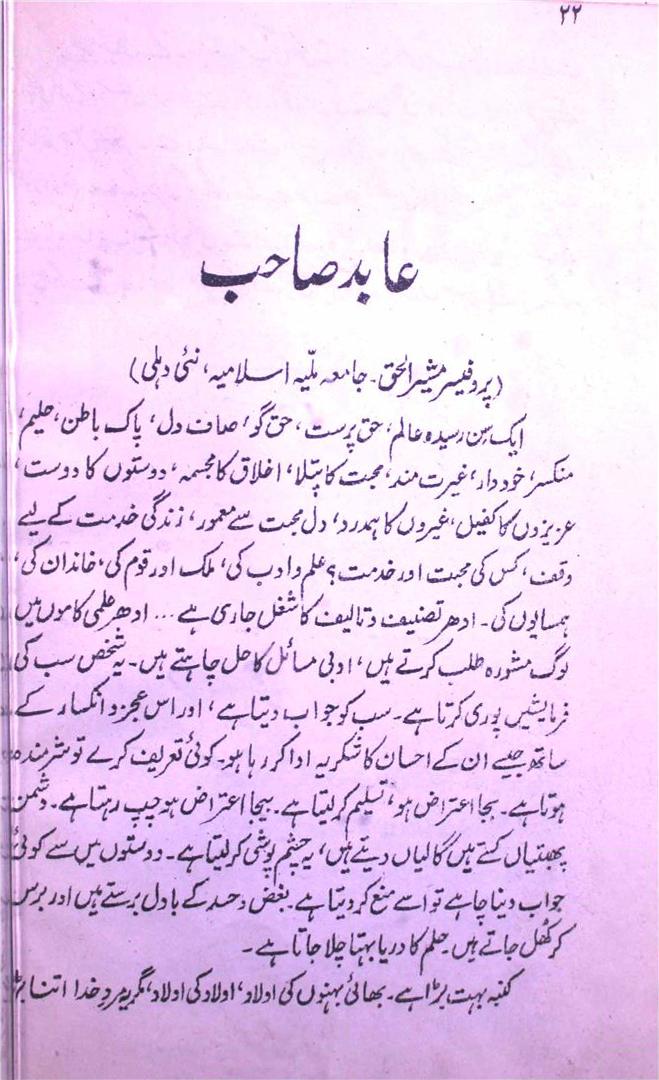 ۲۲
عابد صاحب
(پروفیسر مشیرالحق۔ جامعہ ملّیہ اسلامیہ، نئی دہلی)
ایک سِن رسیدہ عالم، حق پرست، حق گو، صاف دل، پاک باطن، حلیم،
منکسر، خوددار، غیرت مند، محبت کا پتلا، اخلاق کا مجسمہ، دوستوں کا دوست،
عزیزوں کا کفیل، غیروں کا ہمدرد، دل محبت سے معمور، زندگی خدمت کے لیے
وقف، کس کی محبت اور خدمت؟ علم و ادب کی، ملک اور قوم کی، خاندان کی،
ہمسایوں کی۔ ادھر تصنیف و تالیف کا شغل جاری ہے ... ادھر علمی کاموں میں
لوگ مشورہ طلب کرتے ہیں، ادبی مسائل کا حل چاہتے ہیں۔ یہ شخص سب کی
فرمایشیں پوری کرتا ہے۔ سب کو جواب دیتا ہے، اور اس عجز و انکسار کے
ساتھ جیسے ان کے احسان کا شکریہ ادا کر رہا ہو۔ کوئی تعریف کرے تو شرمندہ
ہوتا ہے۔ بجا اعتراض ہو، تسلیم کر لیتا ہے۔ بیجا اعتراض ہو چپ رہتا ہے۔ دشمن
پھبتیاں کستے ہیں گالیاں دیتے ہیں، یہ چشم پوشی کر لیتا ہے۔ دوستوں میں سے کوئی
جواب دینا چاہے تو اسے منع کر دیتا ہے۔ بغض و حسد کے بادل برستے ہیں اور برس
کر کھل جاتے ہیں۔ حلم کا دریا بہتا چلا جاتا ہے۔
کنبہ بہت بڑا ہے۔ بھائی بہنوں کی اولاد، اولاد کی اولاد، مگر یہ مردِ خدا اتنا